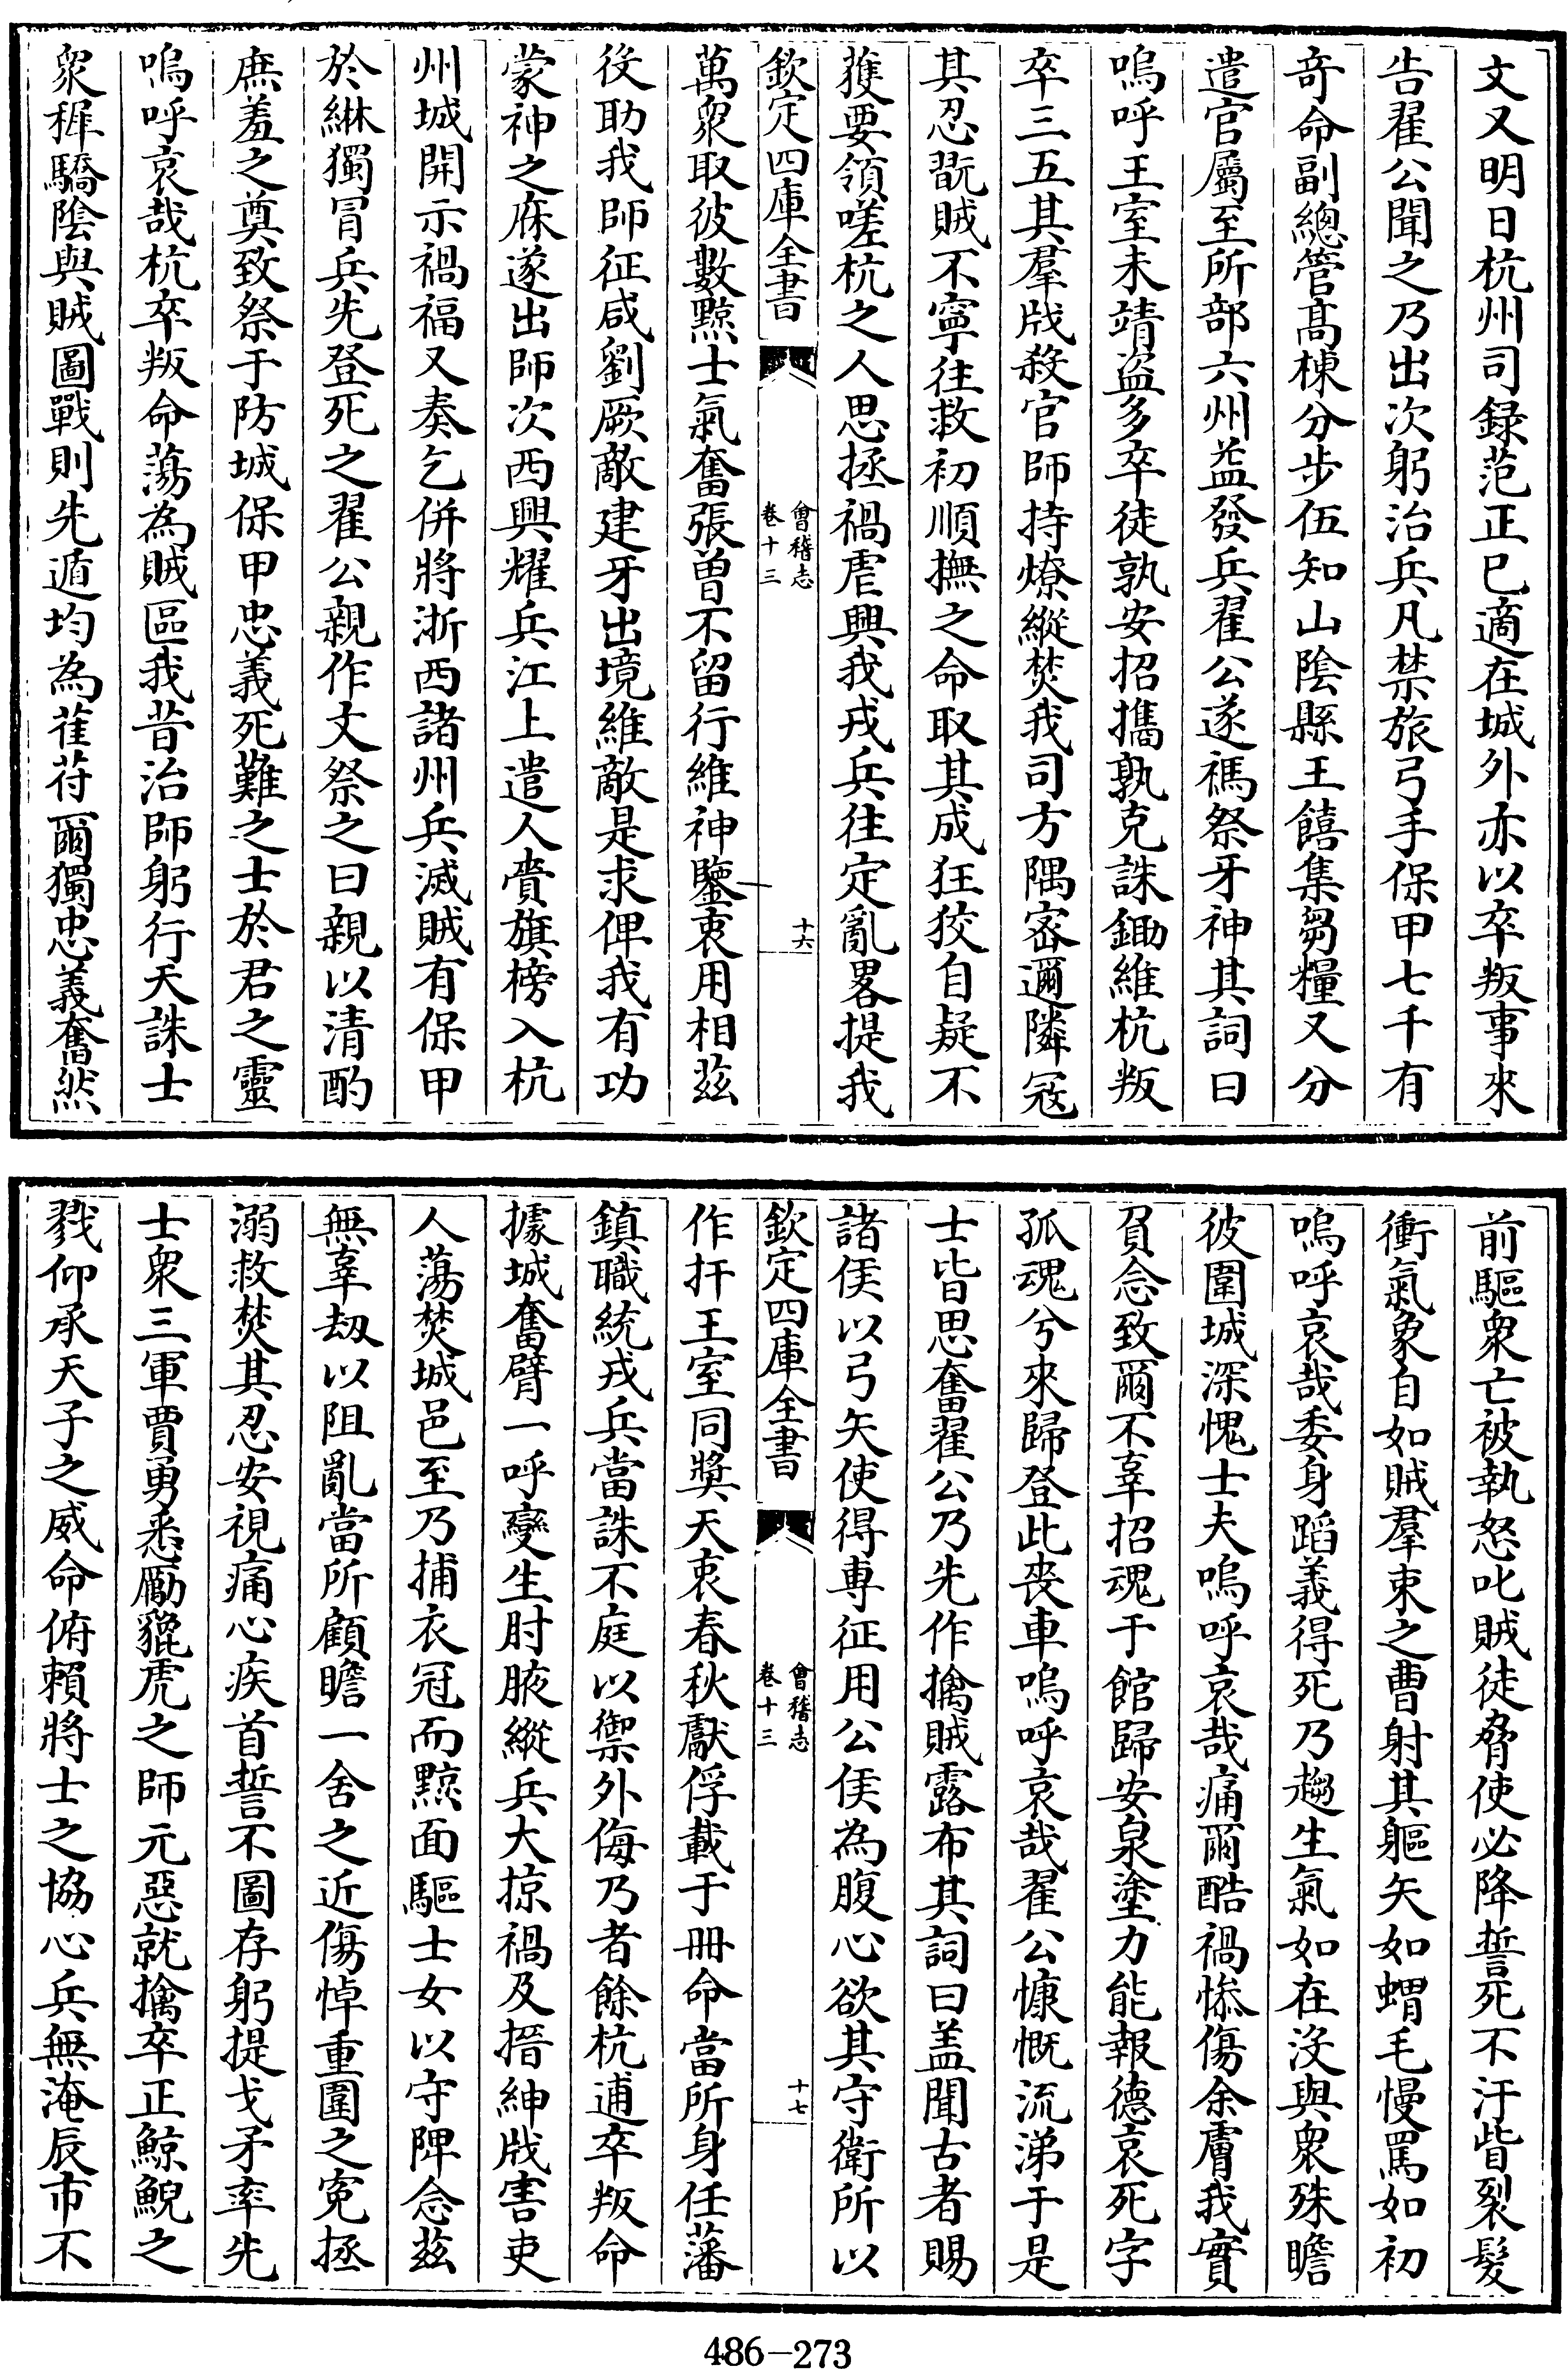 文又明日杭州司録范正已適在城外亦以卒叛事來
告翟公聞之乃出次躬治兵凡禁旅弓手保甲七千有
竒命副總管髙棟分步伍知山陰縣王饎集芻糧又分
遣官屬至所部六州益發兵翟公遂禡祭牙神其詞曰
嗚呼王室未靖盗多卒徒孰安招攜孰克誅鋤維杭叛
卒三五其羣戕殺官師持燎縱焚我司方隅宻邇隣冦
其忍翫賊不寧徃救初順撫之命取其成狂狡自疑不
獲要領嗟杭之人思拯禍虐興我戎兵徃定亂畧提我
欽定四庫全書
會稽志
卷十三
十六
萬衆取彼數黥士氣奮張曽不留行維神鑒衷用相兹
役助我師征咸劉厥敵建牙出境維敵是求俾我有功
蒙神之庥遂出師次西興耀兵江上遣人賫旗榜入杭
州城開示禍福又奏乞併將浙西諸州兵滅賊有保甲
於綝獨冒兵先登死之翟公親作文祭之曰親以清酌
庶羞之奠致祭于防城保甲忠義死難之士於君之靈
嗚呼哀哉杭卒叛命蕩為賊區我昔治師躬行天誅士
衆穉驕陰與賊圖戰則先遁均為萑苻爾獨忠義奮然
前驅衆亡被執怒叱賊徒脅使必降誓死不汙眥裂髮
衝氣象自如賊羣束之曹射其軀矢如蝟毛慢罵如初
嗚呼哀哉委身蹈義得死乃趨生氣如在沒與衆殊瞻
彼圍城深愧士夫嗚呼哀哉痛爾酷禍慘傷余膚我實
負念致爾不辜招魂于館歸安泉塗力能報德哀死字
孤魂兮來歸登此䘮車嗚呼哀哉翟公慷慨流涕于是
士皆思奮翟公乃先作擒賊露布其詞曰盖聞古者賜
諸侯以弓矢使得専征用公侯為腹心欲其守衛所以
欽定四庫全書
會稽志
卷十三
十七
作扞王室同奬天衷春秋獻俘載于冊命當所身任藩
鎮職統戎兵當誅不庭以禦外侮乃者餘杭逋卒叛命
據城奮臂一呼變生肘腋縱兵大掠禍及搢紳戕害吏
人蕩焚城邑至乃捕衣冠而黥面驅士女以守陴念兹
無辜刼以阻亂當所顧瞻一舍之近傷悼重圍之寃拯
溺救焚其忍安視痛心疾首誓不圖存躬提戈矛率先
士衆三軍賈勇悉勵貔虎之師元惡就擒卒正鯨鯢之
戮仰承天子之威命俯賴將士之協心兵無淹辰市不
486—273